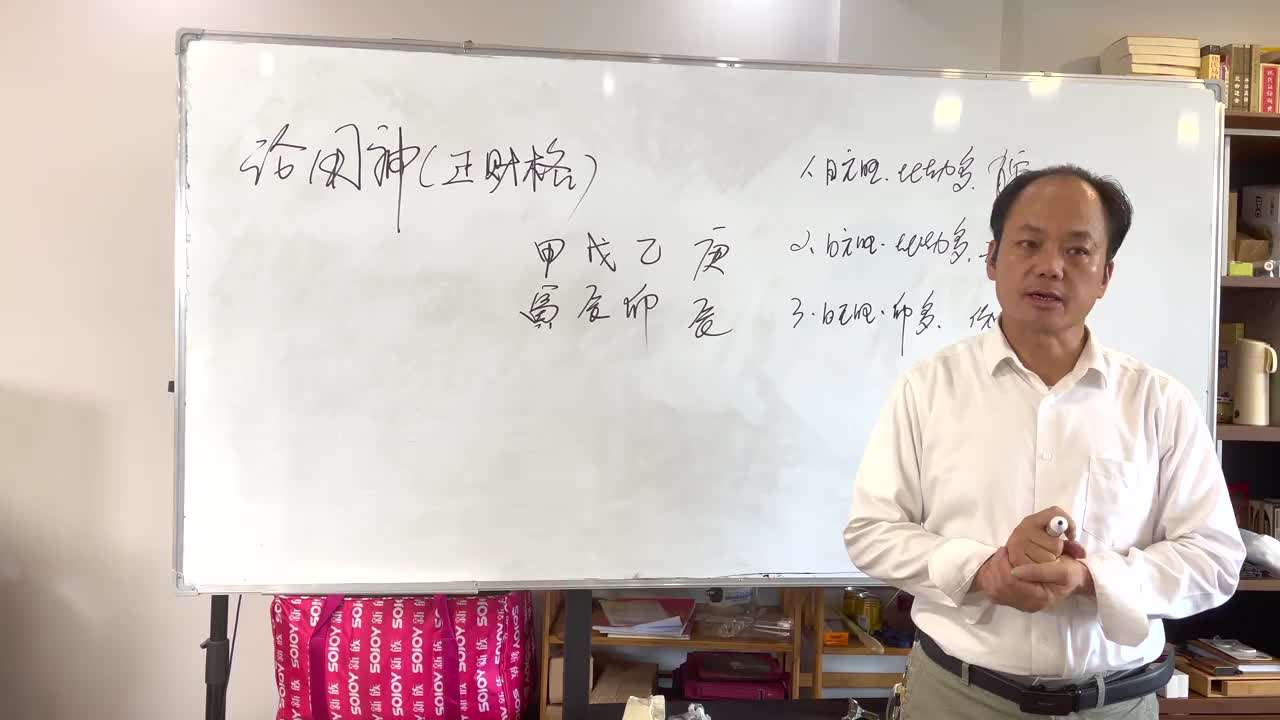 论用神(正财格)
甲戊乙庚
寅辰卯辰
1、日元旺.比劫多.有
2、日元旺.比劫多.
3.日元旺.印多.
SOJOY